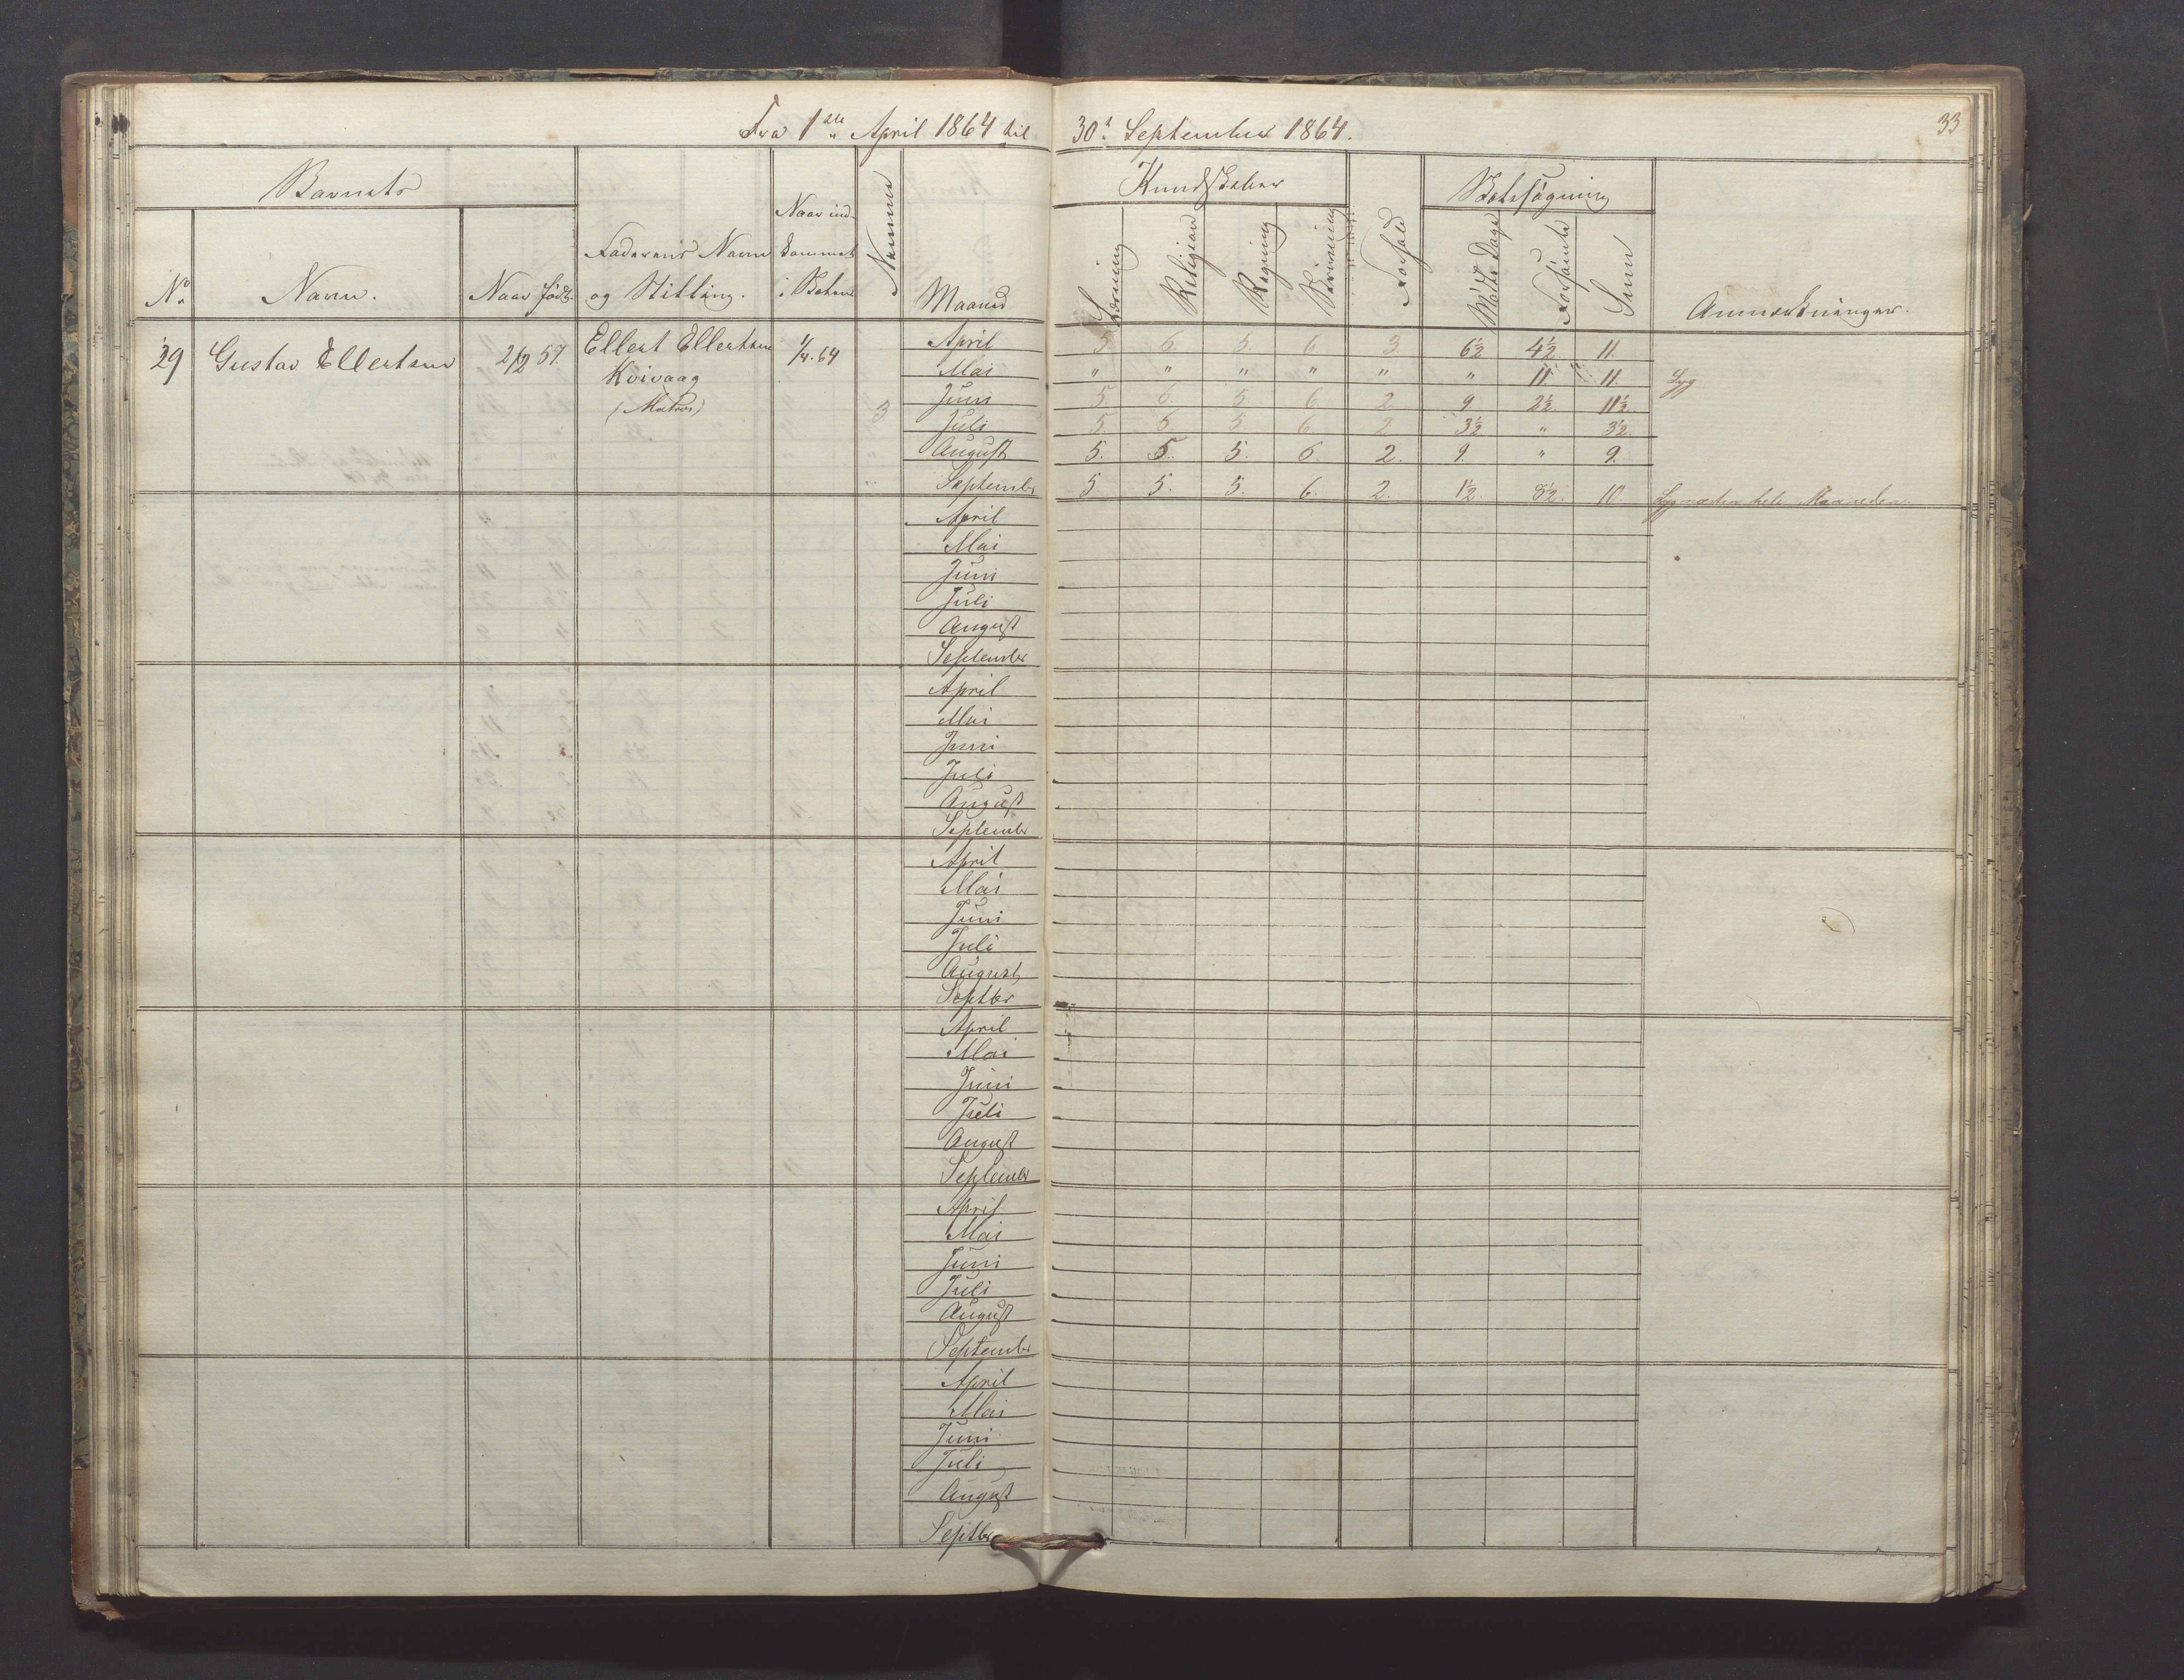 Fra 1ste April 1864 til 30te September 1864.
33
Barnets
Faderens Navn og Stilling.
Naar ind-
kommet
i Skolen
Numer
Maaned
Kundskaber
Forhold
Skolesøgning
Anmærkninger.
No
Navn.
Naar født.
Læsning
Religion
Regning
Skrivning
Mødte Dage
Forsømte
Sum
29 Gustav Ellertsen 2/12 57. Ellert Ellertsen 1/4. 64 April 5. 6. 5. 6. 3. 6½ 4½ 11.
Kvivaag Mai " " " " " " 11 11. Syg
(Matros) 3 Juni 5. 6. 5. 6. 2. 9 2½. 11½.
Juli 5. 6. 5. 6. 2 3½ " 3½.
August 5. 5. 5. 6. 2. 9. " 9.
September 5. 5. 5. 6. 2. 1½. 8½. 10. Syg næsten hele Maaneden.
April
Mai
Juni
Juli
August
September
April
Mai
Juni
Juli
August
September
April
Mai
Juni
Juli
August
Septbr
April
Mai
Juni
Juli
August
September
April
Mai
Juni
Juli
August
September
April
Mai
Juni
Juli
August
Septbr